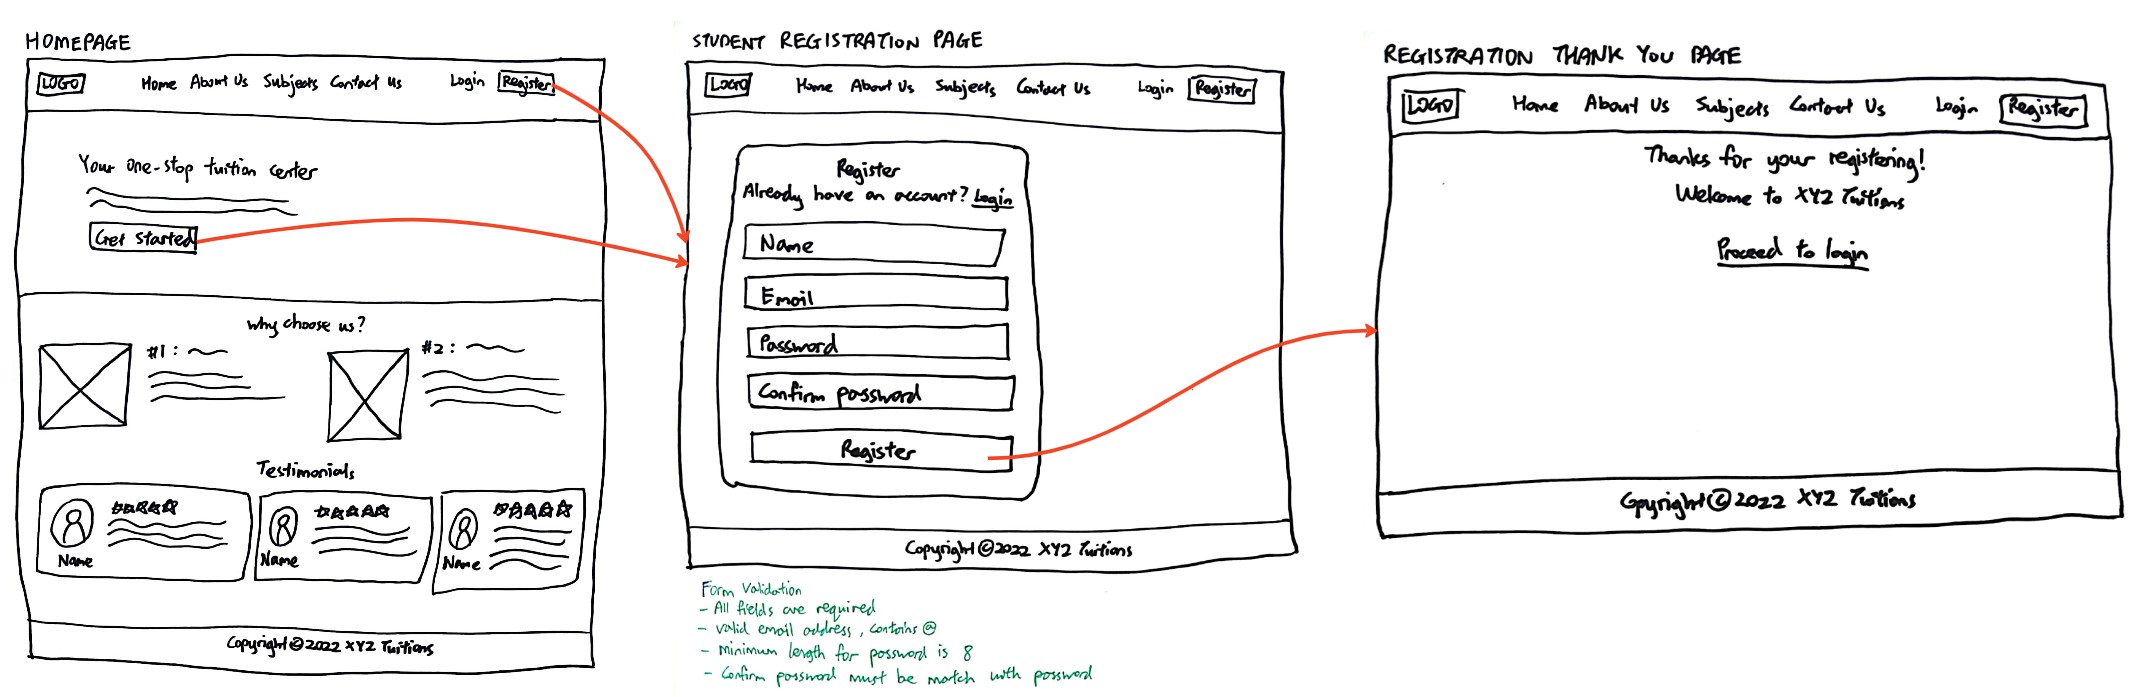 HOMEPAGE
LOGO Home About Us Subjects Contact Us Login Register
Your one-stop tuition center
Get Started
Why choose us?
#1: #2:
Testimonials
Name Name Name
Copyright © 2022 XYZ Tuitions
STUDENT REGISTRATION PAGE
LOGO Home About Us Subjects Contact Us Login Register
Register
Already have an account? Login
Name
Email
Password
Confirm password
Register
Copyright © 2022 XYZ Tuitions
Form Validation
- All fields are required
- valid email address, contains @
- Minimum length for password is 8
- Confirm password must be match with password
REGISTRATION THANK YOU PAGE
LOGO Home About Us Subjects Contact Us Login Register
Thanks for your registering!
Welcome to XYZ Tuitions
Proceed to login
Copyright © 2022 XYZ Tuitions